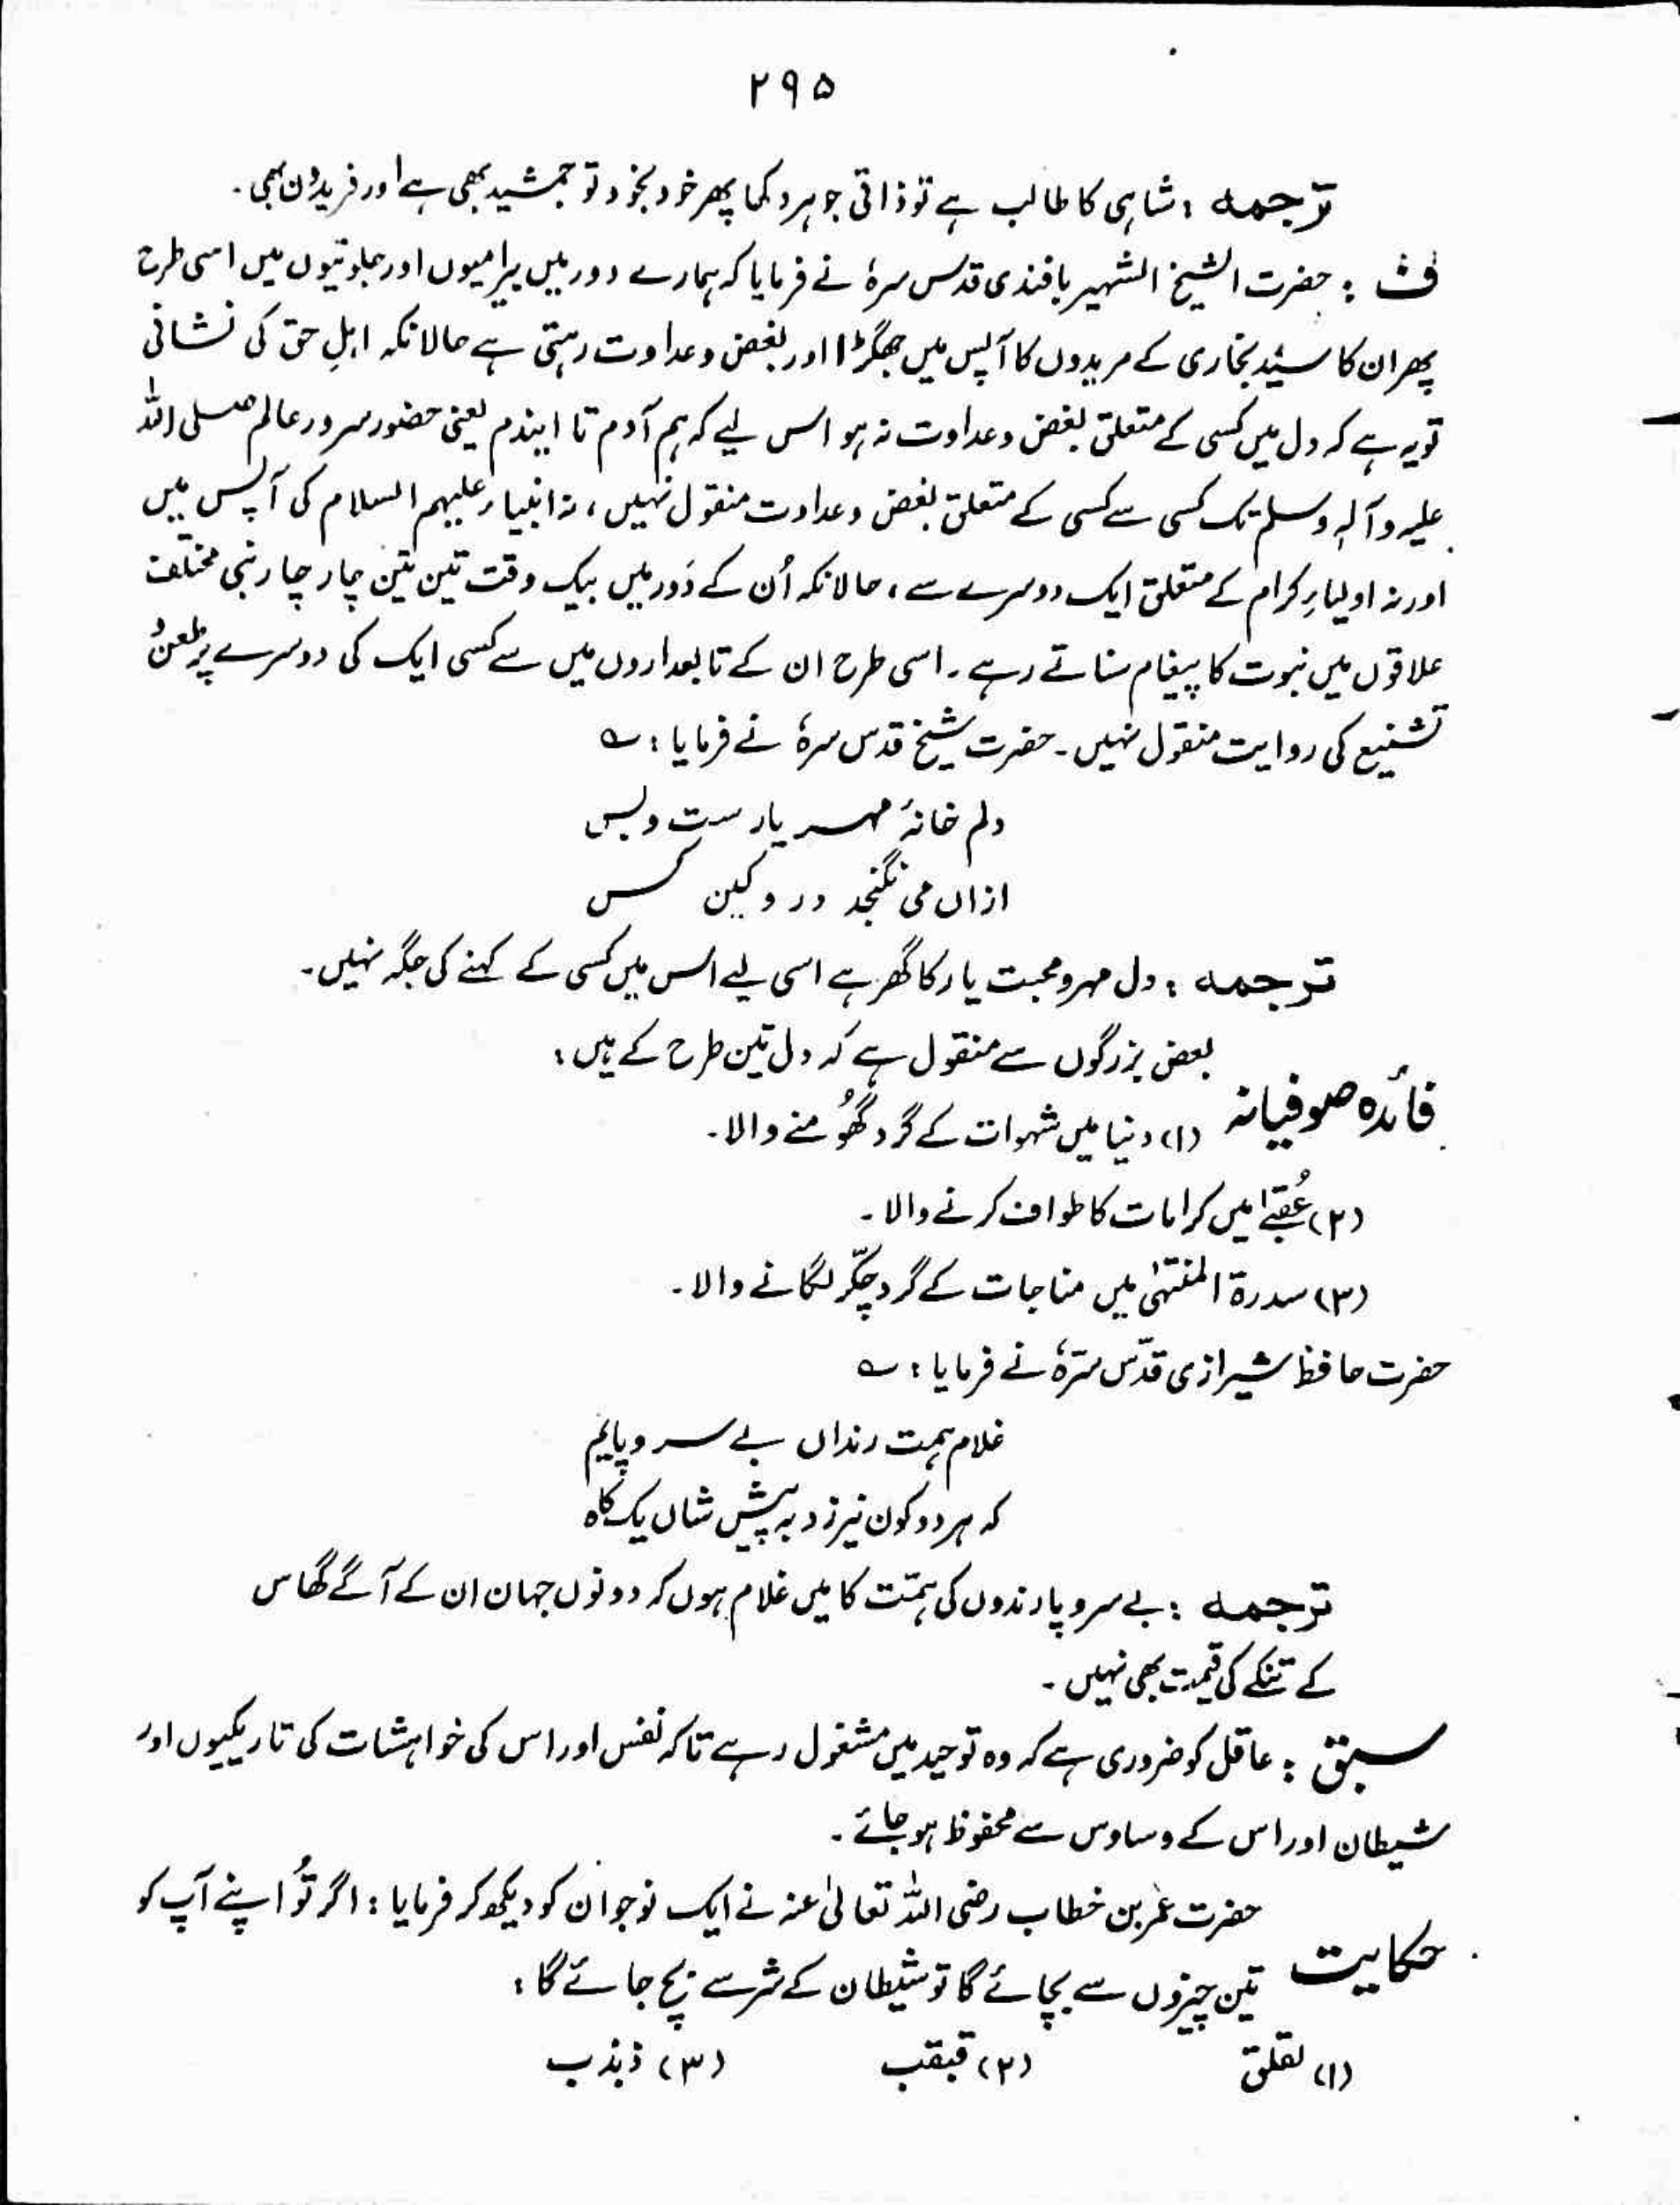 ۲۹۵
ترجمہ : شاہی کا طالب ہے تو ذاتی جوہر دکھا پھر خود بخود تو جمشید بھی ہے اور فریدون بھی ۔
ف : حضرت الشیخ الشہیر بافندی قدس سرہٗ نے فرمایا کہ ہمارے دور میں بیرامیوں اور جلوتیوں میں اسی طرح
پھر ان کا سیّد بخاری کے مریدوں کا آپس میں جھگڑا اور بغض و عداوت رہتی ہے حالانکہ اہلِ حق کی نشانی
تو یہ ہے کہ دل میں کسی کے متعلق بغض و عداوت نہ ہو اس لیے کہ ہم آدم تا ایندم یعنی حضور سرور عالم صلی اللہ
علیہ وآلہٖ وسلم تک کسی سے کسی کے متعلق بغض و عداوت منقول نہیں ، نہ انبیاء علیہم السلام کی آپس میں
اور نہ اولیاءِ کرام کے متعلق ایک دوسرے سے ، حالانکہ اُن کے دَور میں بیک وقت تین تین چار چار نبی مختلف
علاقوں میں نبوت کا پیغام سناتے رہے ۔ اسی طرح ان کے تابعداروں میں سے کسی ایک کی دوسرے پر طعن و
تشنیع کی روایت منقول نہیں ۔ حضرت شیخ قدس سرہٗ نے فرمایا : ؎
دلم خانۂ مہر یارست و بس
ازاں می نگنجد درو کین کس
ترجمہ : دل مہر و محبت یار کا گھر ہے اسی لیے اس میں کسی کے کہنے کی جگہ نہیں ۔
بعض بزرگوں سے منقول ہے کہ دل تین طرح کے ہیں :
فائدہ صوفیانہ
(۱) دنیا میں شہوات کے گرد گھُومنے والا ۔
(۲) عُقبےٰ میں کرامات کا طواف کرنے والا ۔
(۳) سدرۃ المنتہٰی میں مناجات کے گرد چکّر لگانے والا ۔
حضرت حافظ شیرازی قدّس سرّہٗ نے فرمایا : ؎
غلام ہمت رنداں بے سر و پایم
کہ ہر دو کون نیرزد بہ پیش شاں یک کاہ
ترجمہ : بے سر و پا رندوں کی ہمّت کا میں غلام ہوں کہ دونوں جہان ان کے آگے گھاس
کے تنکے کی قیمت بھی نہیں ۔
سبق : عاقل کو ضروری ہے کہ وہ توحید میں مشغول رہے تاکہ نفس اور اس کی خواہشات کی تاریکیوں اور
شیطان اور اس کے وساوس سے محفوظ ہو جائے ۔
حضرت عمر بن خطاب رضی اللہ تعالیٰ عنہ نے ایک نوجوان کو دیکھ کر فرمایا : اگر تُو اپنے آپ کو
حکایت
تین چیزوں سے بچائے گا تو شیطان کے شر سے بچ جائے گا :
(۱) لقلق (۲) قبقب (۳) ذبذب